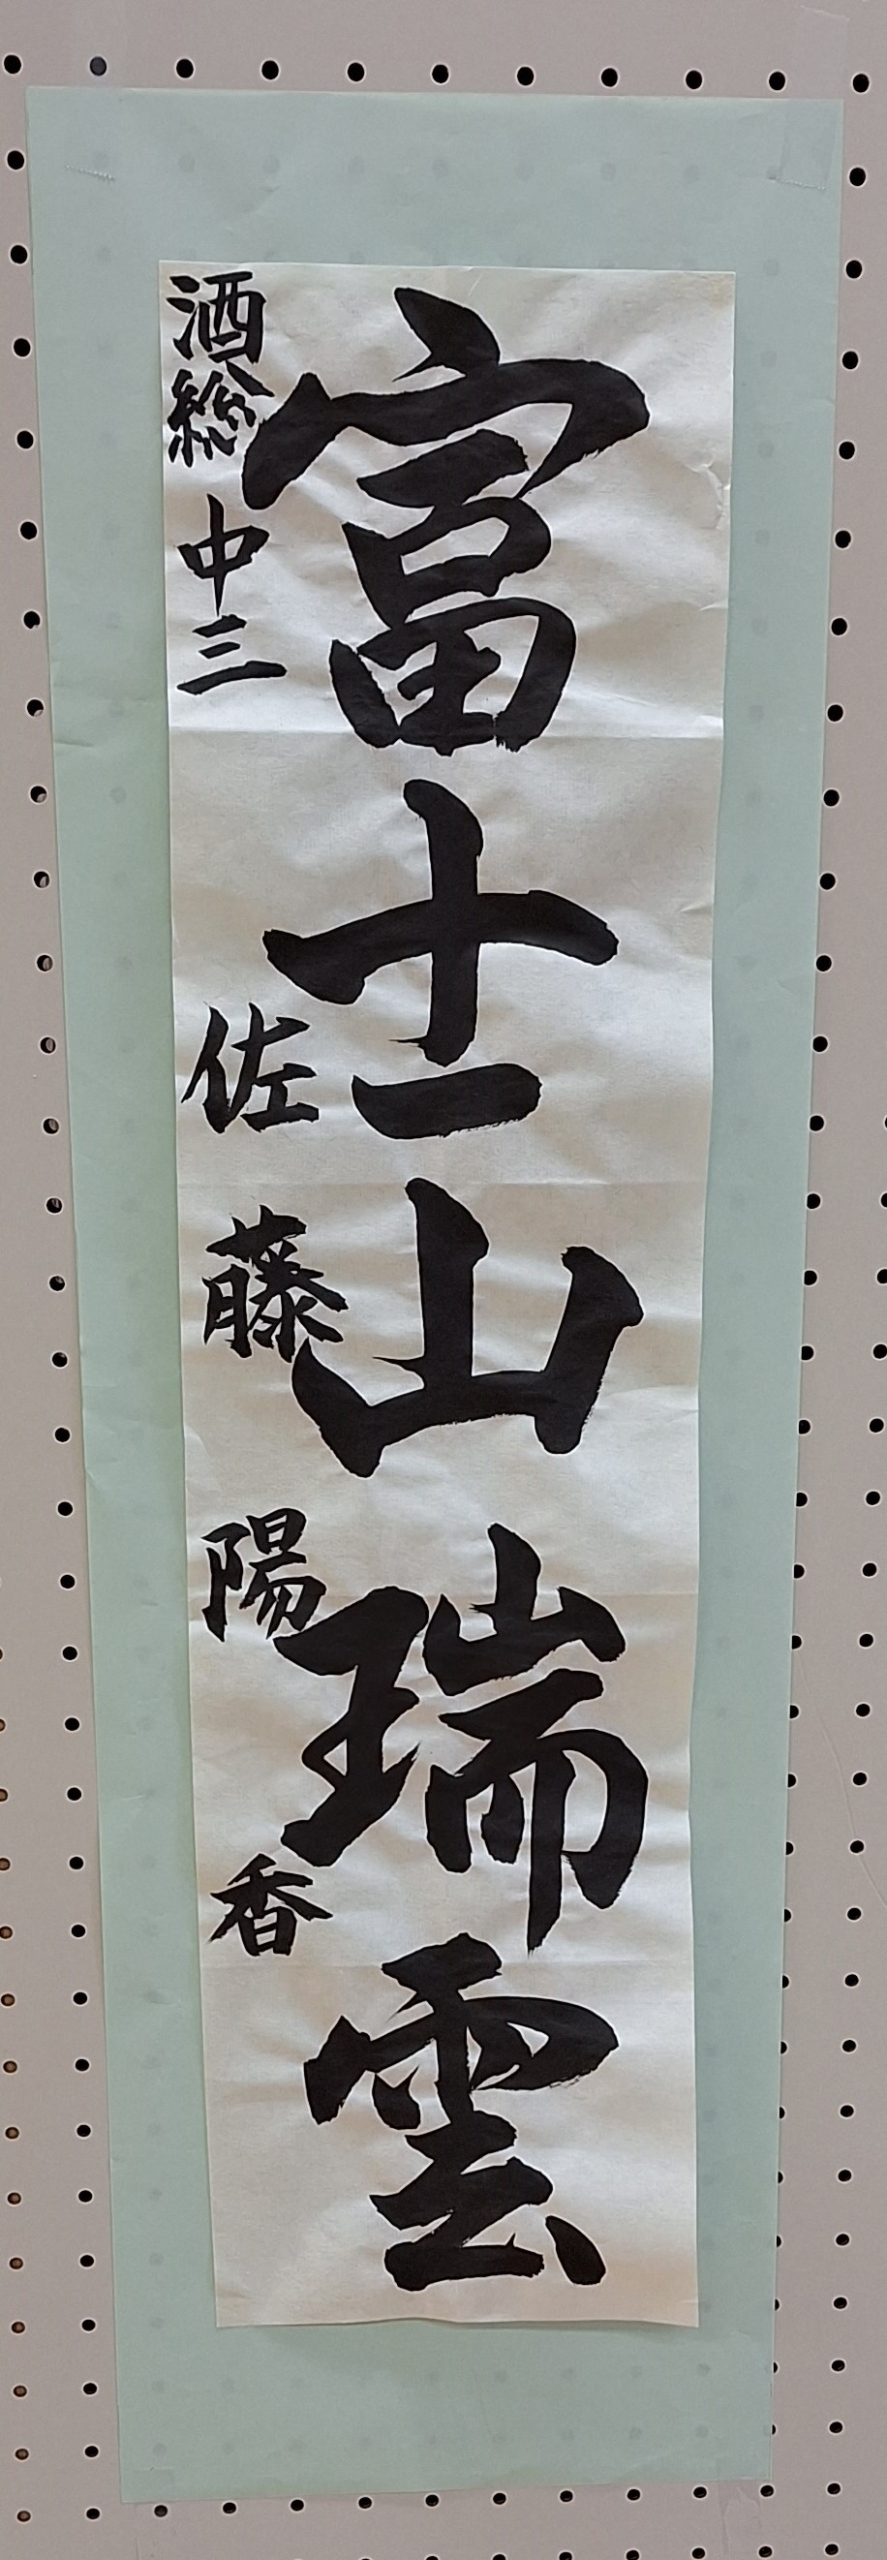 富士山瑞雲
酒総 中三 佐藤陽香